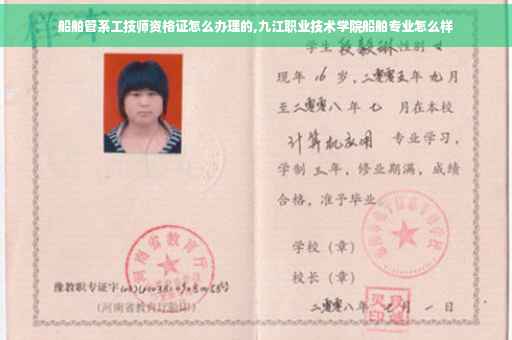 船舶管系工技师资格证怎么办理的,九江职业技术学院船舶专业怎么样
学生 段毅琳 性别 女
现年 16 岁,二零零五年 九月
至二零零八年 七 月在本校
计算机应用 专业学习,
学制 三年,修业期满,成绩
合格,准予毕业
学校(章)
校长(章)
河南省教育厅
豫教职专证字
(河南省教育厅验印)
二零零八年 月 一 日